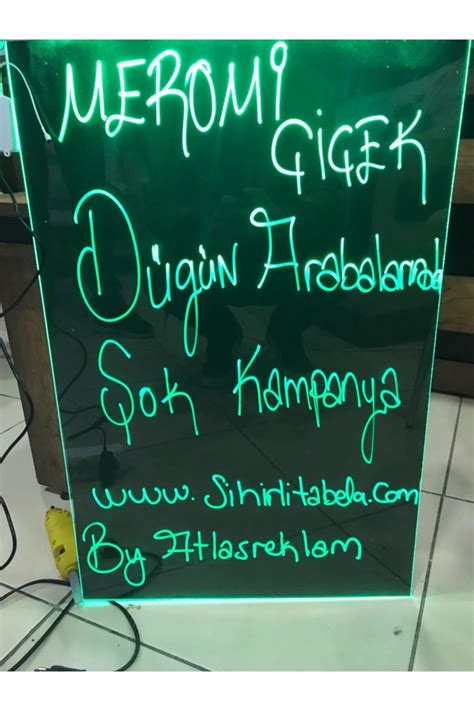 MEROMİ
ÇİÇEK
Düğün Arabalarında
Şok Kampanya
www.Sihirlitabela.Com
By Atlasreklam